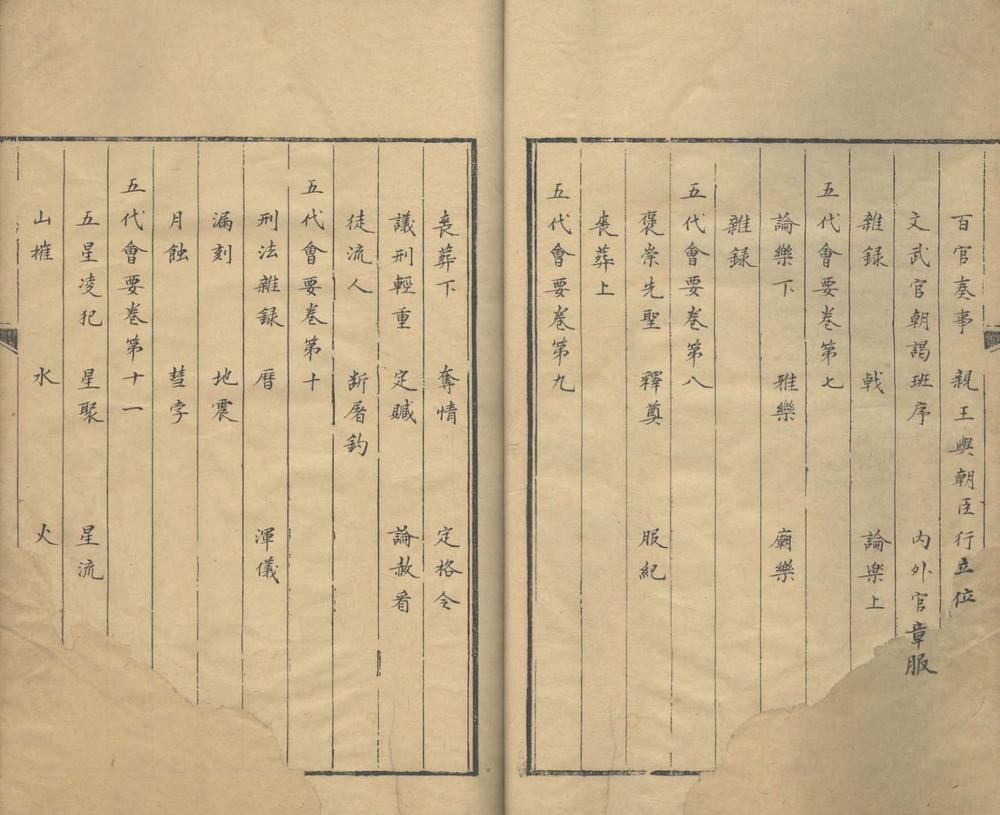 百官奏事 親王與朝臣行立位
文武官朝謁班序 內外官章服
雜録 戟 論樂上
五代會要卷第七
論樂下 雅樂 廟樂
雜録
五代會要卷第八
褒崇先聖 釋奠 服紀
喪葬上
五代會要卷第九
喪葬下 奪情 定格令
議刑輕重 定贓 論赦看
徒流人 断屠釣
五代會要卷第十
刑法雜録 曆 渾儀
漏刻 地震
月蝕 彗孛
五代會要卷第十一
五星凌犯 星聚 星流
山摧 水 火